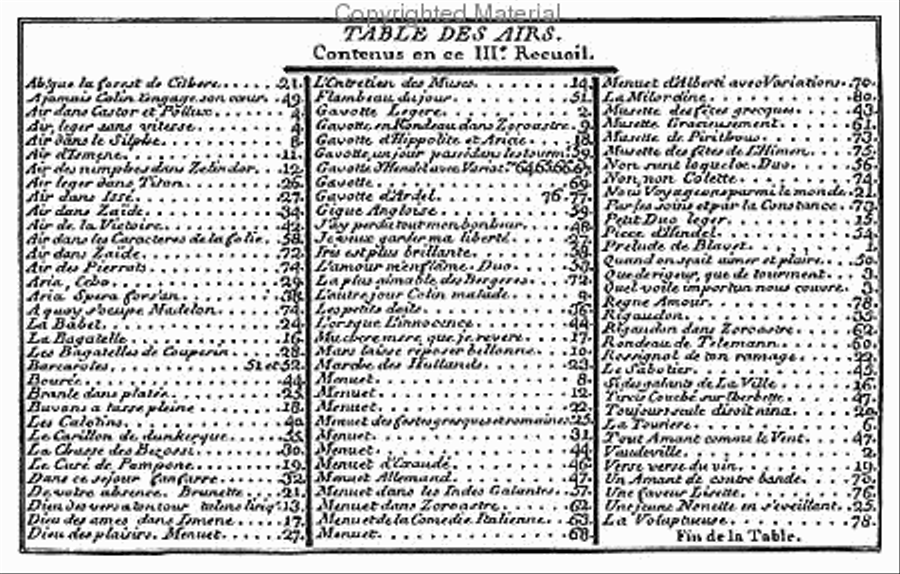 Copyrighted Material
TABLE DES AIRS.
Contenus en ce III.e Recueil.
Absque la forest de Cithere.....21.
Ajamais Colin t'engage son cœur. .49.
Air dans Castor et Pollux.....4.
Air leger sans vitesse.....4.
Air dans le Silphe.....8.
Air d'Ismene.....11.
Air des nimphes dans Zelindor. .12.
Air leger dans Titon.....26.
Air dans Issé.....27.
Air dans Zaïde.....34.
Air de la Victoire.....42.
Air dans les Caracteres de la folie. .58.
Air dans Zaïde.....72.
Air des Pierrots.....74.
Aria, Cebo.....29.
Aria Spera forsan.....38.
A quoy s'ocupe Madelon.....74.
La Babet.....24.
La Bagatelle.....16.
Les Bagatelles de Couperin. . . .28.
Barcaroles.....51 et 52.
Bourée.....44.
Branle dans platée.....25.
Buvons a tasse pleine.....18.
Les Calotins.....40.
Le Carillon de dunkerque.....55.
La Chasse des Bezossi.....30.
Le Curé de Pompone.....19.
Dans ce sejour fanfarre.....32.
De votre absence. Brunette. . . .21.
Dieu des vers a ton tour .13.
Dieu des ames dans Ismene. . . .17.
Dieu des plaisirs. Menuet.....27.
L'Entretien des Muses.....14.
Flambeau du jour.....51.
Gavotte Legere.....2.
Gavotte en Rondeau dans Zoroastre. .9.
Gavotte d'Hippolite et Aricie. . .18.
Gavotte, un jour passé dans les tourm.59.
Gavotte d'Hendel avec Variat.ns 64.65.66.67.
Gavotte.....69.
Gavotte d'Ardel.....76. 77.
Gigue Angloise.....59.
J'ay perdu tout mon bonheur. . .48.
Je veux garder ma liberté.....27.
Iris est plus brillante.....38.
L'amour m'enflâme. Duo.....53.
La plus aimable des Bergeres. . .72.
L'autre jour Colin malade.....9.
Les petits doits.....36.
Lorsque L'innocence.....44.
Ma chere mere, que je revere. . .17.
Mars laisse reposer bellonne. . .10.
Marche des Hullands.....23.
Menuet.....8.
Menuet.....12.
Menuet.....22.
Menuet des festes grecques et romaines.25.
Menuet.....31.
Menuet.....44.
Menuet d'Exaudé.....46.
Menuet Allemand.....47.
Menuet dans les Indes Galantes. .57.
Menuet dans Zoroastre.....62.
Menuet de la Comedie Italienne. .63.
Menuet.....68.
Menuet d'Alberti avec Variations. .70.
La Milordine.....80.
Musette des fêtes grecques.....43.
Musette Gracieusement.....61.
Musette de Pirithous.....73.
Musette des fêtes de L'Himen. . .75.
Non sunt loqueloe. Duo.....56.
Non, non Colette.....74.
Nous Voyageons parmi le monde. .21.
Par les soins et par la Constance. .79.
Petit Duo leger.....15.
Piece d'Hendel.....54.
Prelude de Blavet.....1.
Quand on sçait aimer et plaire. . .50.
Que de rigeur, que de tourment. . .3.
Quel voile importun nous couvre. .3.
Regne Amour.....78.
Rigaudon.....33.
Rigaudon dans Zoroastre.....62.
Rondeau de Telemann.....60.
Rossignol de ton ramage.....22.
Le Sabotier.....45.
Si des galants de La Ville.....16.
Tircis Couché sur l'herbette. . . .47.
Toujours seule disoit nina.....20.
La Touriere.....6.
Tout Amant comme le Vent. . . .47.
Vaudeville.....2.
Verse verse du vin.....19.
Un Amant de contre bande.....70.
Une faveur Lisette.....76.
Une jeune Nonette en s'eveillant. .25.
La Voluptueuse.....78.
Fin de la Table.